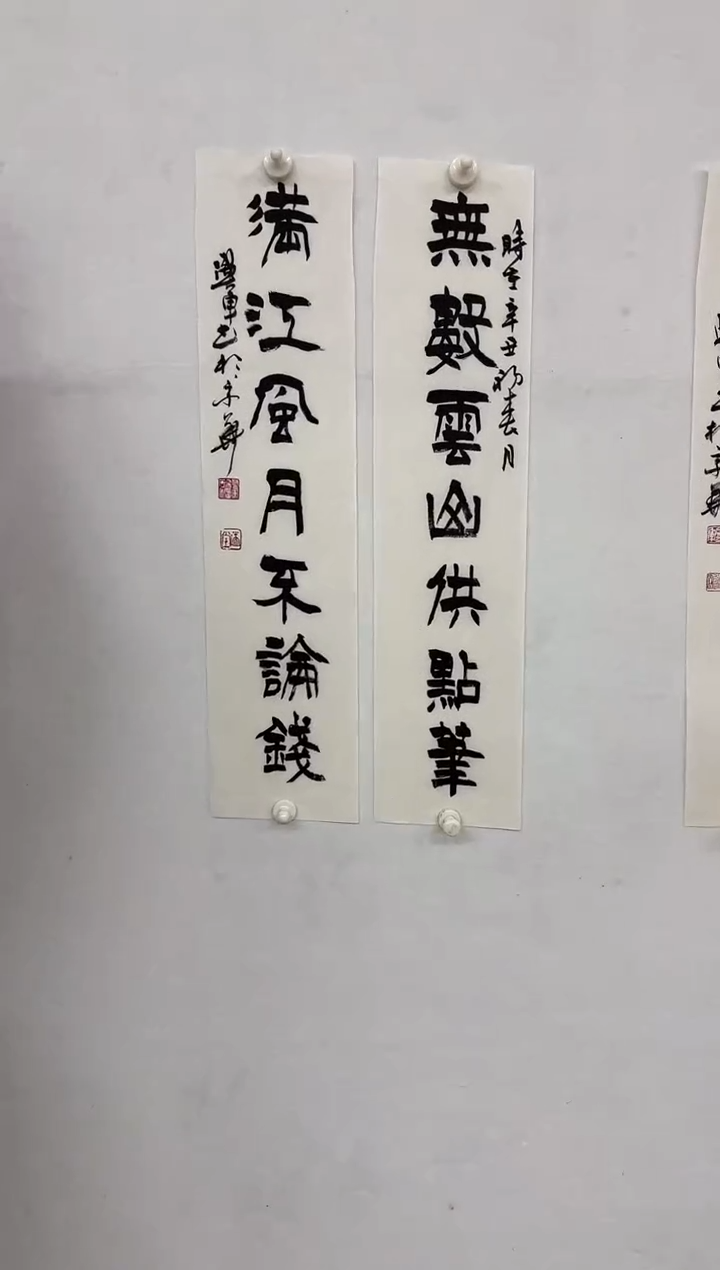 無數雲山供點筆
時在辛丑初春月
滿江風月不論錢
興軍書於京華